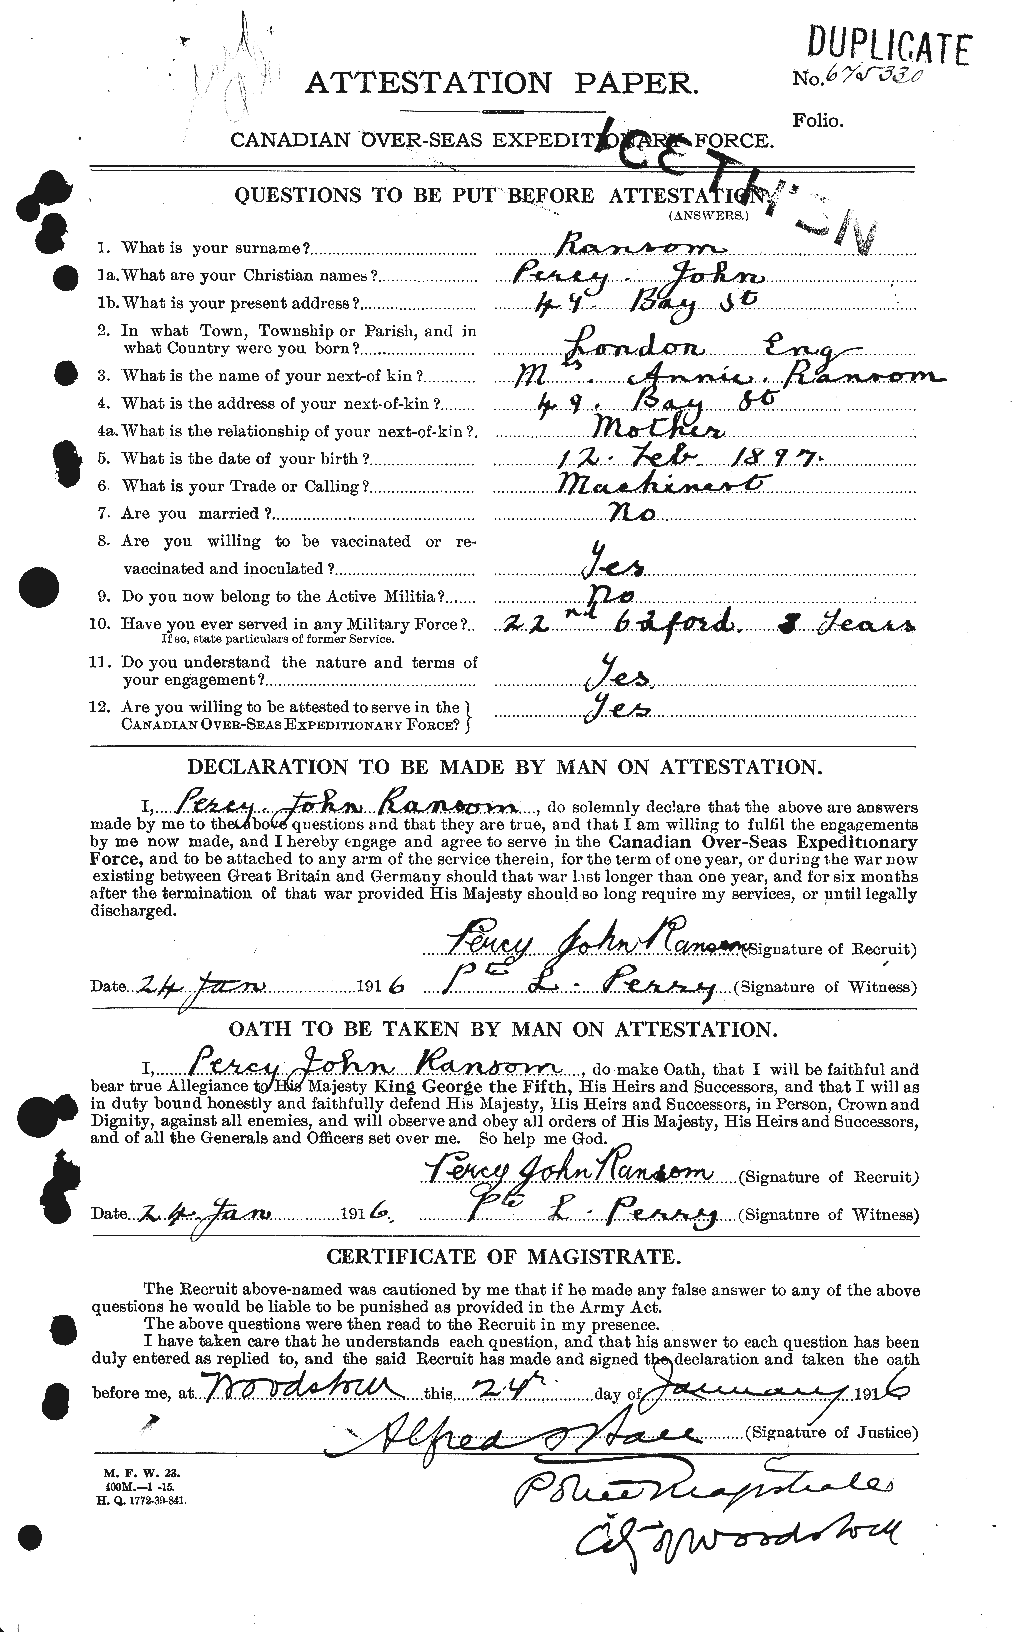 DUPLICATE
ATTESTATION PAPER.
No. 675330
Folio.
CANADIAN OVER-SEAS EXPEDITIONARY FORCE.
QUESTIONS TO BE PUT BEFORE ATTESTATION.
(ANSWERS.)
1. What is your surname? Ransom
1a. What are your Christian names? Percy. John
1b. What is your present address? 49 Bay St
2. In what Town, Township or Parish, and in
what Country were you born? London Eng
3. What is the name of your next-of kin? Mrs. Annie. Ransom
4. What is the address of your next-of-kin? 49. Bay St
4a. What is the relationship of your next-of-kin? Mother
5. What is the date of your birth? 12. Feb. 1897.
6. What is your Trade or Calling? Machinest
7. Are you married? No
8. Are you willing to be vaccinated or re-
vaccinated and inoculated? Yes
9. Do you now belong to the Active Militia? No
10. Have you ever served in any Military Force? 22nd Oxford. 3 Years
If so, state particulars of former Service.
11. Do you understand the nature and terms of
your engagement? Yes
12. Are you willing to be attested to serve in the
CANADIAN OVER-SEAS EXPEDITIONARY FORCE? } Yes
DECLARATION TO BE MADE BY MAN ON ATTESTATION.
I, Percy. John Ransom, do solemnly declare that the above are answers
made by me to the above questions and that they are true, and that I am willing to fulfil the engagements
by me now made, and I hereby engage and agree to serve in the Canadian Over-Seas Expeditionary
Force, and to be attached to any arm of the service therein, for the term of one year, or during the war now
existing between Great Britain and Germany should that war last longer than one year, and for six months
after the termination of that war provided His Majesty should so long require my services, or until legally
discharged.
Percy John Ransom (Signature of Recruit)
Date 24 Jan 1916 Pte L. Perry (Signature of Witness)
OATH TO BE TAKEN BY MAN ON ATTESTATION.
I, Percy John Ransom, do make Oath, that I will be faithful and
bear true Allegiance to His Majesty King George the Fifth, His Heirs and Successors, and that I will as
in duty bound honestly and faithfully defend His Majesty, His Heirs and Successors, in Person, Crown and
Dignity, against all enemies, and will observe and obey all orders of His Majesty, His Heirs and Successors,
and of all the Generals and Officers set over me. So help me God.
Percy John Ransom (Signature of Recruit)
Date 24. Jan 1916. Pte L. Perry (Signature of Witness)
CERTIFICATE OF MAGISTRATE.
The Recruit above-named was cautioned by me that if he made any false answer to any of the above
questions he would be liable to be punished as provided in the Army Act.
The above questions were then read to the Recruit in my presence.
I have taken care that he understands each question, and that his answer to each question has been
duly entered as replied to, and the said Recruit has made and signed the declaration and taken the oath
before me, at Woodstock this 24th day of January 1916
Alfred (Signature of Justice)
M. F. W. 23.
400M.—1-15.
H. Q. 1772-39-841.
Police Magistrate
City of Woodstock